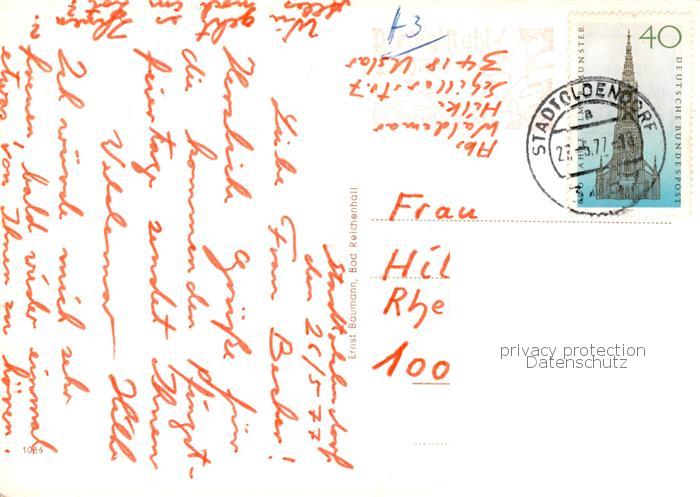 Stadtoldendorf
den 26/5.77
Liebe Frau Becker!
Herzliche Grüße für
die kommenden Pfingst-
feiertage sendet Ihnen
Waldemar
Ich würde mich sehr
freuen, bald wieder einmal
etwas von Ihnen zu hören.
Wie
geht
es
Ihnen
?
Abs
Waldemar
Schillerstr. 7
3418 Uslar
A3
Frau
Hil
Rhe
100
Ernst Baumann, Bad Reichenhall
40
DEUTSCHE BUNDESPOST
MÜNSTER
STADTOLDENDORF
a
privacy protection
Datenschutz